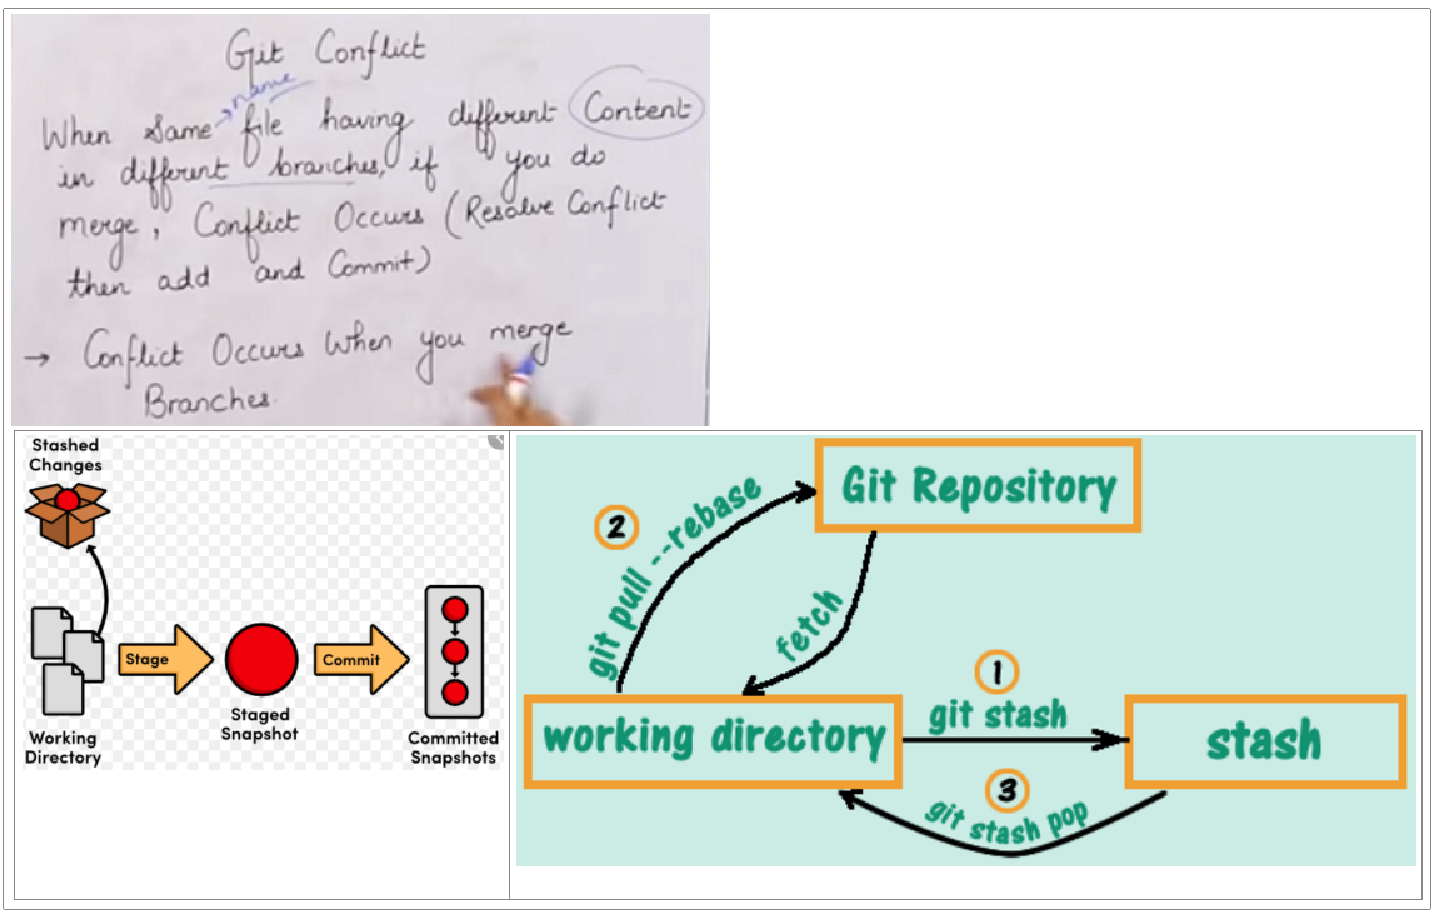 Git Conflict
name
When Same file having different Content
in different branches, if you do
merge, Conflict Occurs (Resolve Conflict
then add and Commit)
→ Conflict Occurs When you merge
Branches.
Stashed
Changes
Stage
Commit
Staged
Snapshot
Working
Directory
Committed
Snapshots
Git Repository
2
git pull --rebase
fetch
1
git stash
working directory
stash
3
git stash pop